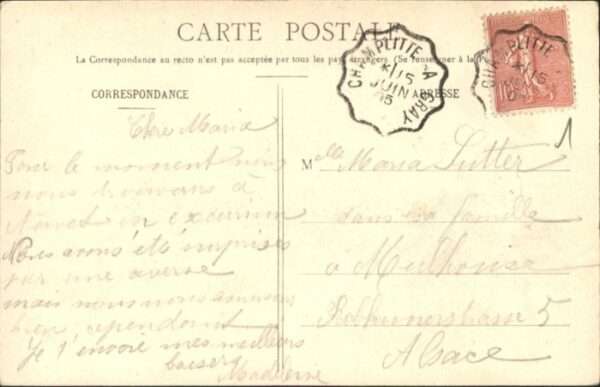 CARTE POSTALE
La Correspondance au recto n'est pas acceptée par tous les pays étrangers (Se renseigner à la
CORRESPONDANCE
ADRESSE
CHAMPLITTE A GRAY
15
JUIN
05
CHAMPLITTE
15
Chère Maria
Pour le moment nous
nous trouvons à
en excursion
Nous avons été surprises
par une averse
mais nous nous amusons
bien cependant
Je t'envoie mes meilleurs
baisers
Madeleine
Mlle Maria Sutter
dans sa famille
à Mulhouse
5
Alsace